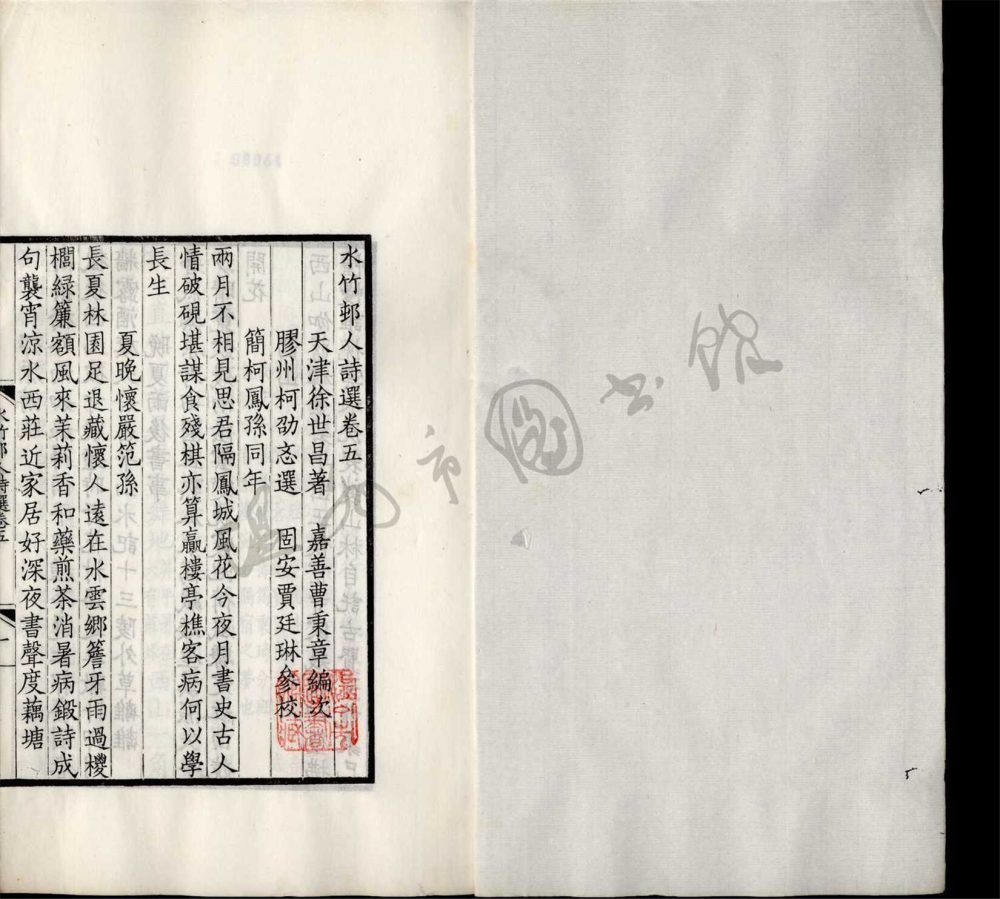 水竹邨人詩選卷五
天津徐世昌著　嘉善曹秉章編次
膠州柯劭忞選　固安賈廷琳參校
簡柯鳳孫同年
兩月不相見思君隔鳳城風花今夜月書史古人
情破硯堪謀食殘棋亦算贏樓亭樵客病何以學
長生
夏晚懷嚴范孫
長夏林園足退藏懷人遠在水雲鄉簷牙雨過櫻
櫚綠簾額風來茉莉香和藥煎茶消暑病鍛詩成
句襲宵涼水西莊近家居好深夜書聲度藕塘
水竹邨人詩選卷五
一
市圖書館